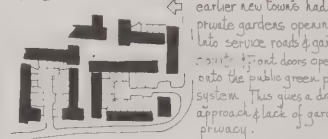 earlier new towns had
private gardens opening
into service roads & gar
front doors ope
onto the public green
system. This gives a dr
approach & lack of gar
privacy.